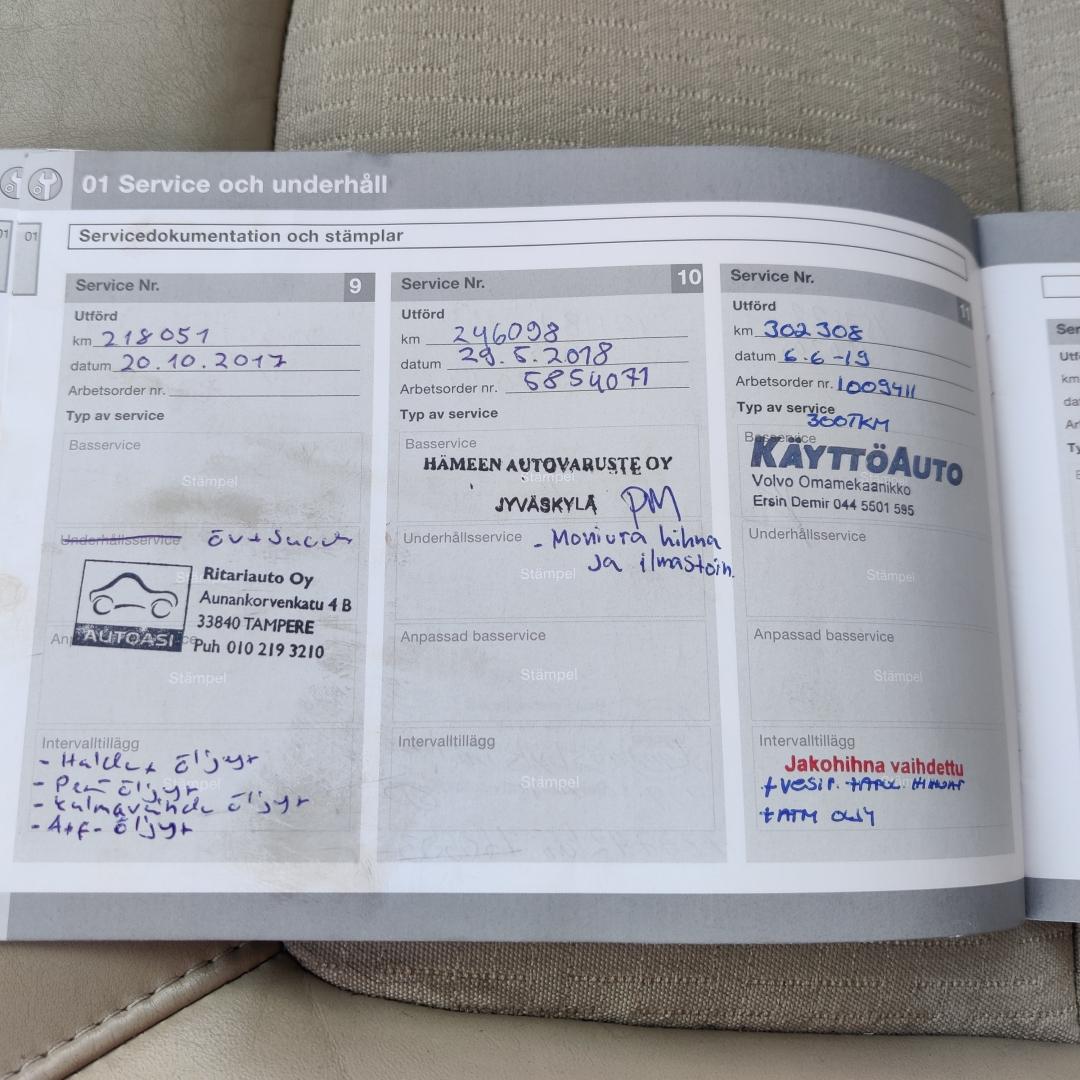 01 Service och underhåll
01
01
Servicedokumentation och stämplar
Service Nr. 9
Utförd
km 218051
datum 20.10.2017
Arbetsorder nr.
Typ av service
Basservice
Stämpel
Underhållsservice
Ritariauto Oy
Aunankorvenkatu 4 B
33840 TAMPERE
Puh 010 219 3210
AUTOASI
Stämpel
Intervalltillägg
- Haldex öljyt
- Perä öljyt
- Kulmavaihde öljyt
- Atf- öljyt
Service Nr. 10
Utförd
km 246098
datum 29.5.2018
Arbetsorder nr. 5854071
Typ av service
Basservice
HÄMEEN AUTOVARUSTE OY
Stämpel
JYVÄSKYLÄ PM
Underhållsservice - Moniura hihna
ja ilmastoin.
Stämpel
Anpassad basservice
Stämpel
Intervalltillägg
Stämpel
Service Nr. 11
Utförd
km 302308
datum 6.6-19
Arbetsorder nr. 1009411
Typ av service
300TKM
Basservice
KÄYTTÖAUTO
Volvo Omamekaanikko
Ersin Demir 044 5501 595
Underhållsservice
Stämpel
Anpassad basservice
Stämpel
Intervalltillägg
Jakohihna vaihdettu
+ VESIP.
+ ATM ÖLJY
Ser
Utf
km
da
Ar
Ty